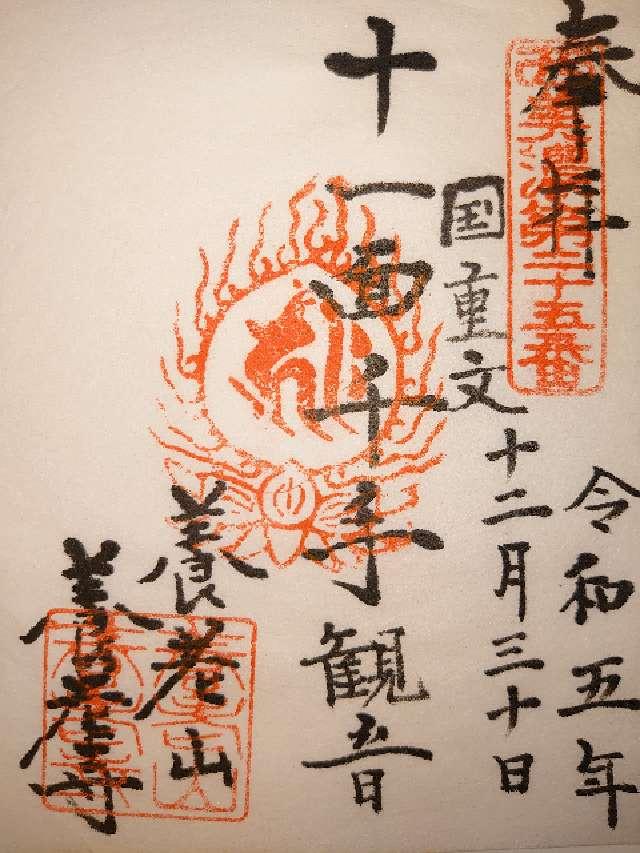 奉拝
西美濃第二十五番
令和五年
十二月三十日
国重文
十一面千手観音
養老山
養老寺